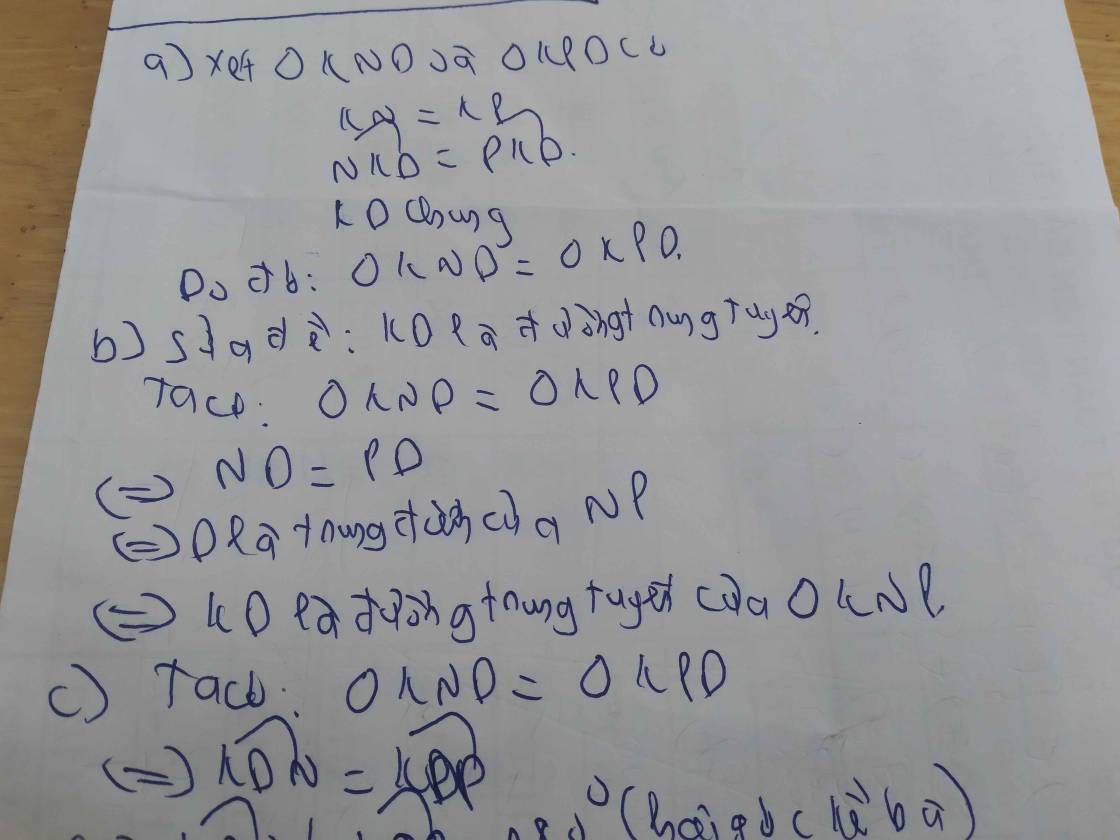 a) Xét Δ KND và Δ KPD có
KN = KP
NKD = PKD.
KD chung
Do đó: Δ KND = Δ KPD.
b) Sửa đề: KD là đường trung tuyến.
Ta có: Δ KND = Δ KPD
(=) ND = PD
(=) D là trung điểm của NP
(=) KD là đường trung tuyến của Δ KNP.
c) Ta có: Δ KND = Δ KPD
(=) KDN = KDP
(hai góc kề bù)